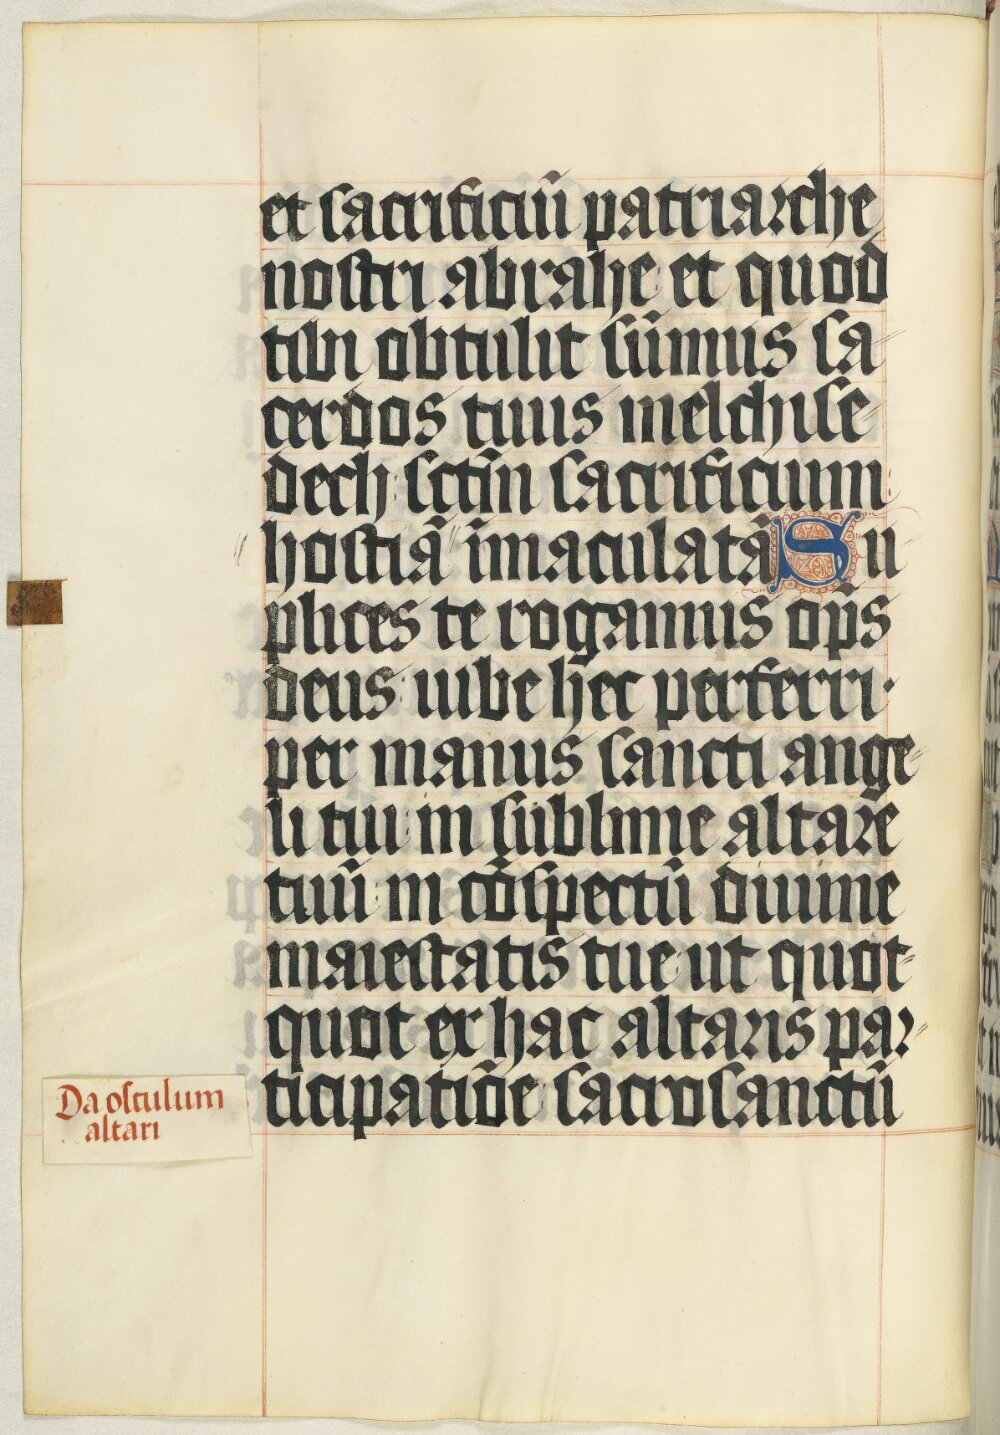 et sacrificiū patriarche
nostri abrahe et quod
tibi obtulit sūmus sa
cerdos tuus melchise
dech sctm̄ sacrificium
hostiā īmaculatā Su
plices te rogamus op̄s
deus iube hec perferri
per manus sancti ange
li tui in sublime altare
tuū in cōspectū diuine
maiestatis tue ut quot
quot ex hac altaris par
ticipatiōe sacrosanctū
Da osculum
altari